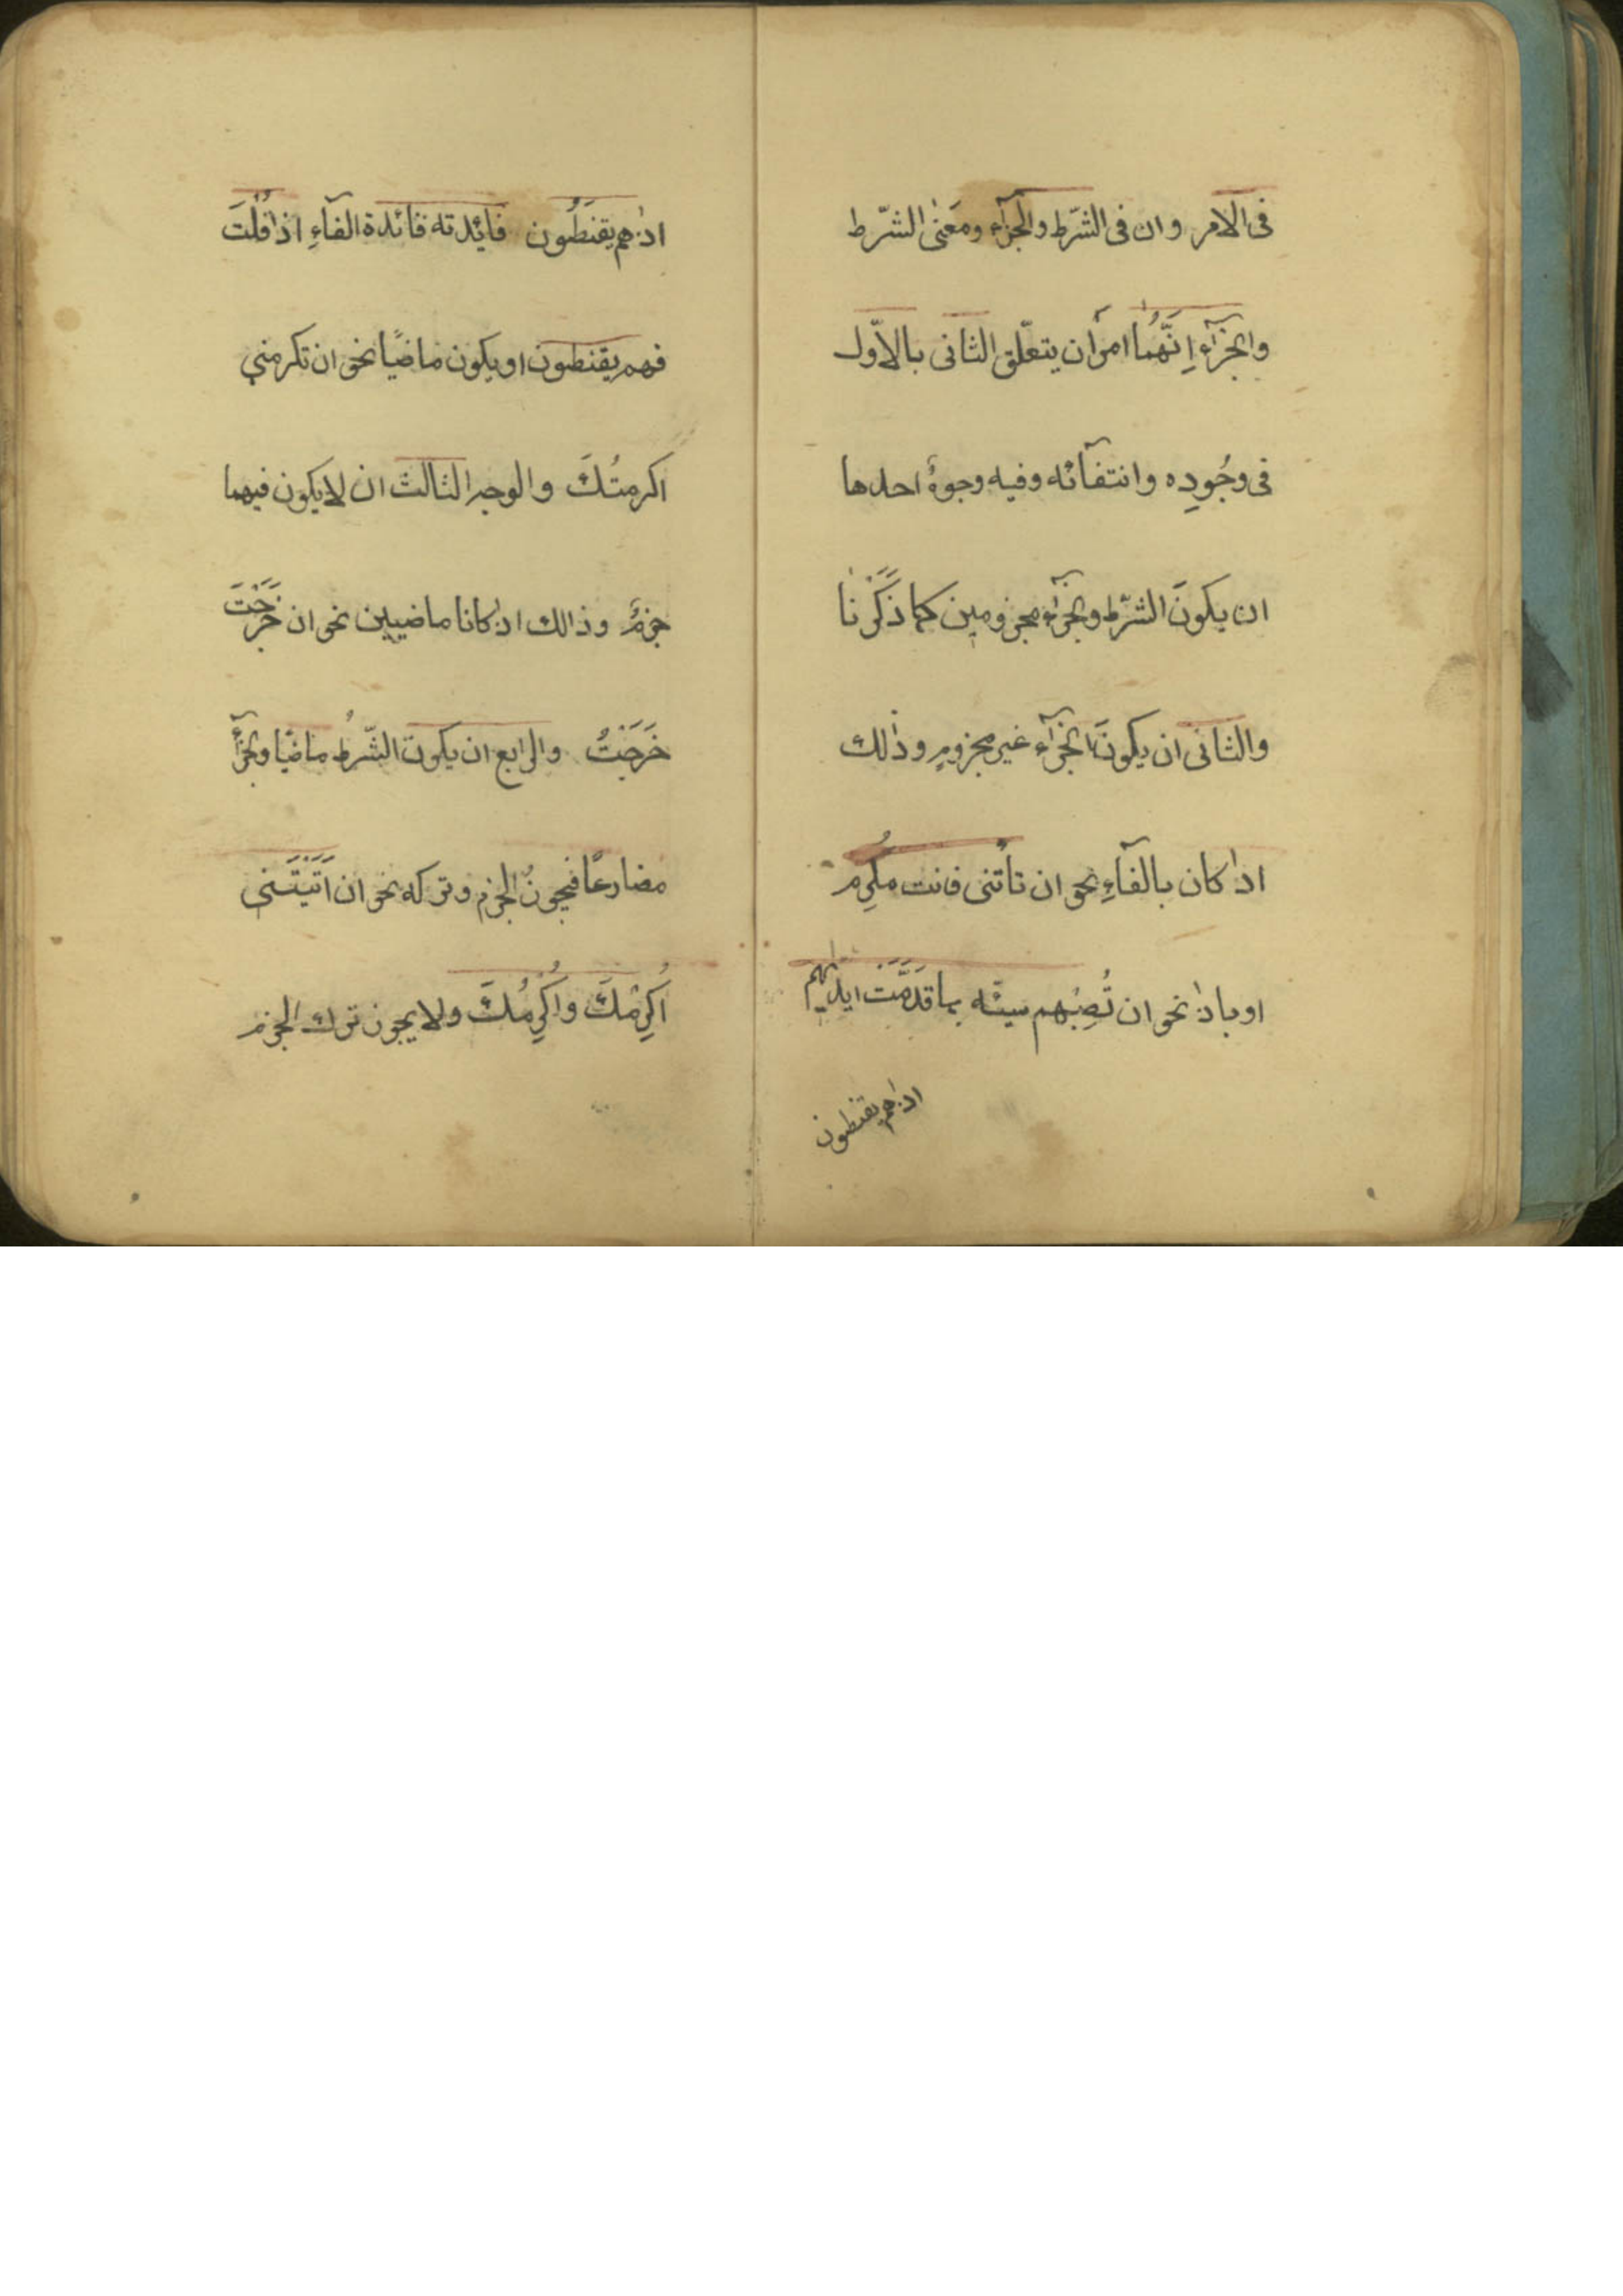 فى الامر وان فى الشّرط والجزآء ومَعنٰى الشّرط
والجزآءِ اِنّهُما امرَان يتعلّق الثانى بالاوّل
فى وجُودِه وانتفآئه وفيه وجوهٌ احدها
ان يكونَ الشّرط والجزآء مجزومين كما ذَكَرْنا
والثانى ان يكونَ الجزآء غير مجزومٍ وذٰلك
اذا كان بالفآءِ نحو ان تأتنى فانت مُكرِم
او باذا نحو ان تُصِبْهم سيئه بما قَدَّمَتْ ايديهم
اذا هم يقنطون
اذا هم يقنَطُون فائدته فائدة الفآءِ اذا قُلْتَ
فهم يقنطون او يكون ماضيًا نحو ان تكرمني
اكرمتُكَ والوجه الثالث ان لا يكون فيهما
جزمٌ وذالك اذا كانا ماضيين نحو ان خَرَجْتَ
خَرَجْتُ والرابع ان يكون الشّرطُ ماضيًا والجزآءُ
مضارعًا فيجوزُ الجزم وتركه نحو ان اَتَيْتَنى
اُكرِمْكَ واُكْرِمُكَ ولا يجوز ترك الجزم